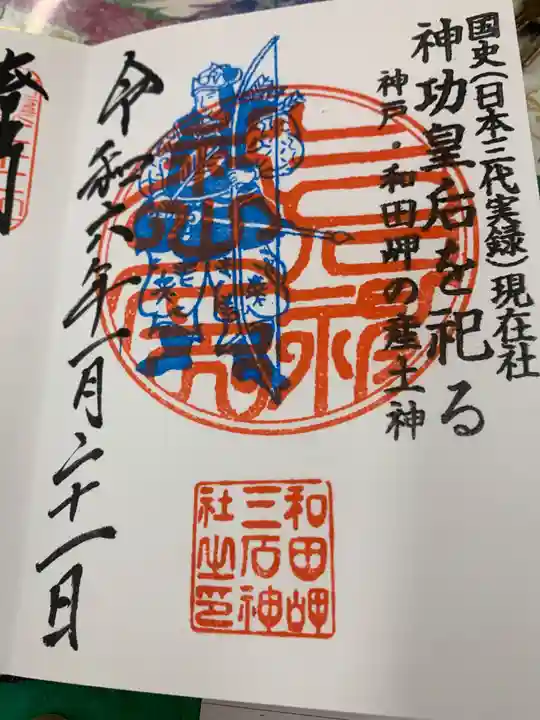 国史(日本三代実録)現在社
神功皇后を祀る
神戸・和田岬の産土神
和田岬
三石神
社之印
令和六年一月二十一日